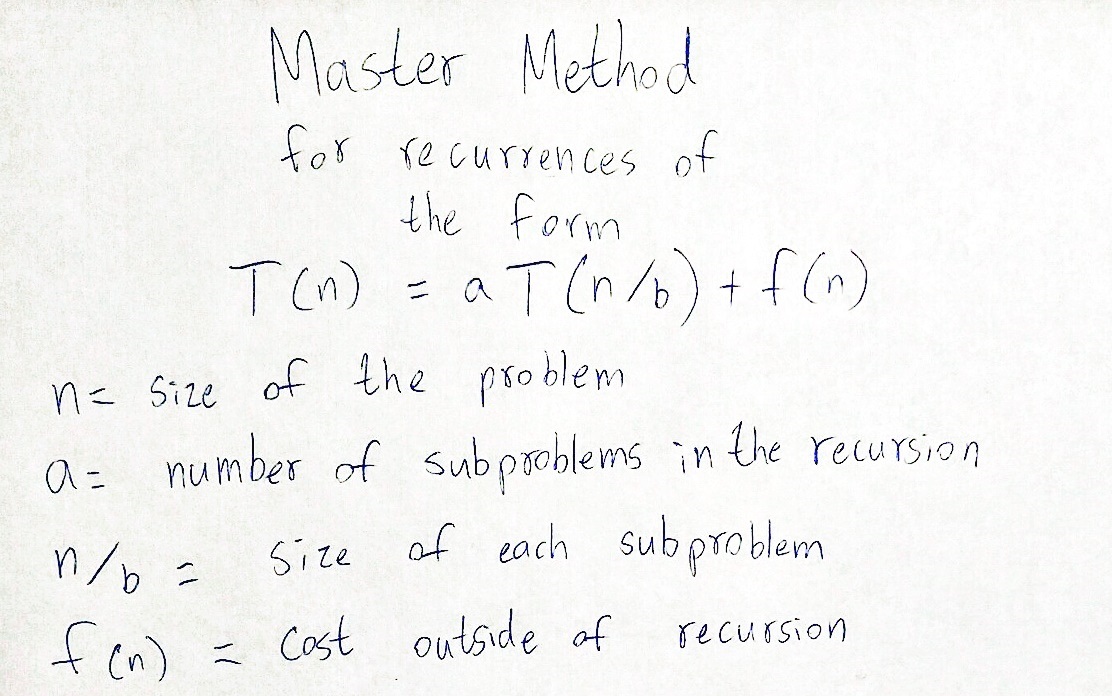 Master Method
for recurrences of
the form
T(n) = a T(n/b) + f(n)
n = size of the problem
a = number of subproblems in the recursion
n/b = size of each subproblem
f(n) = cost outside of recursion